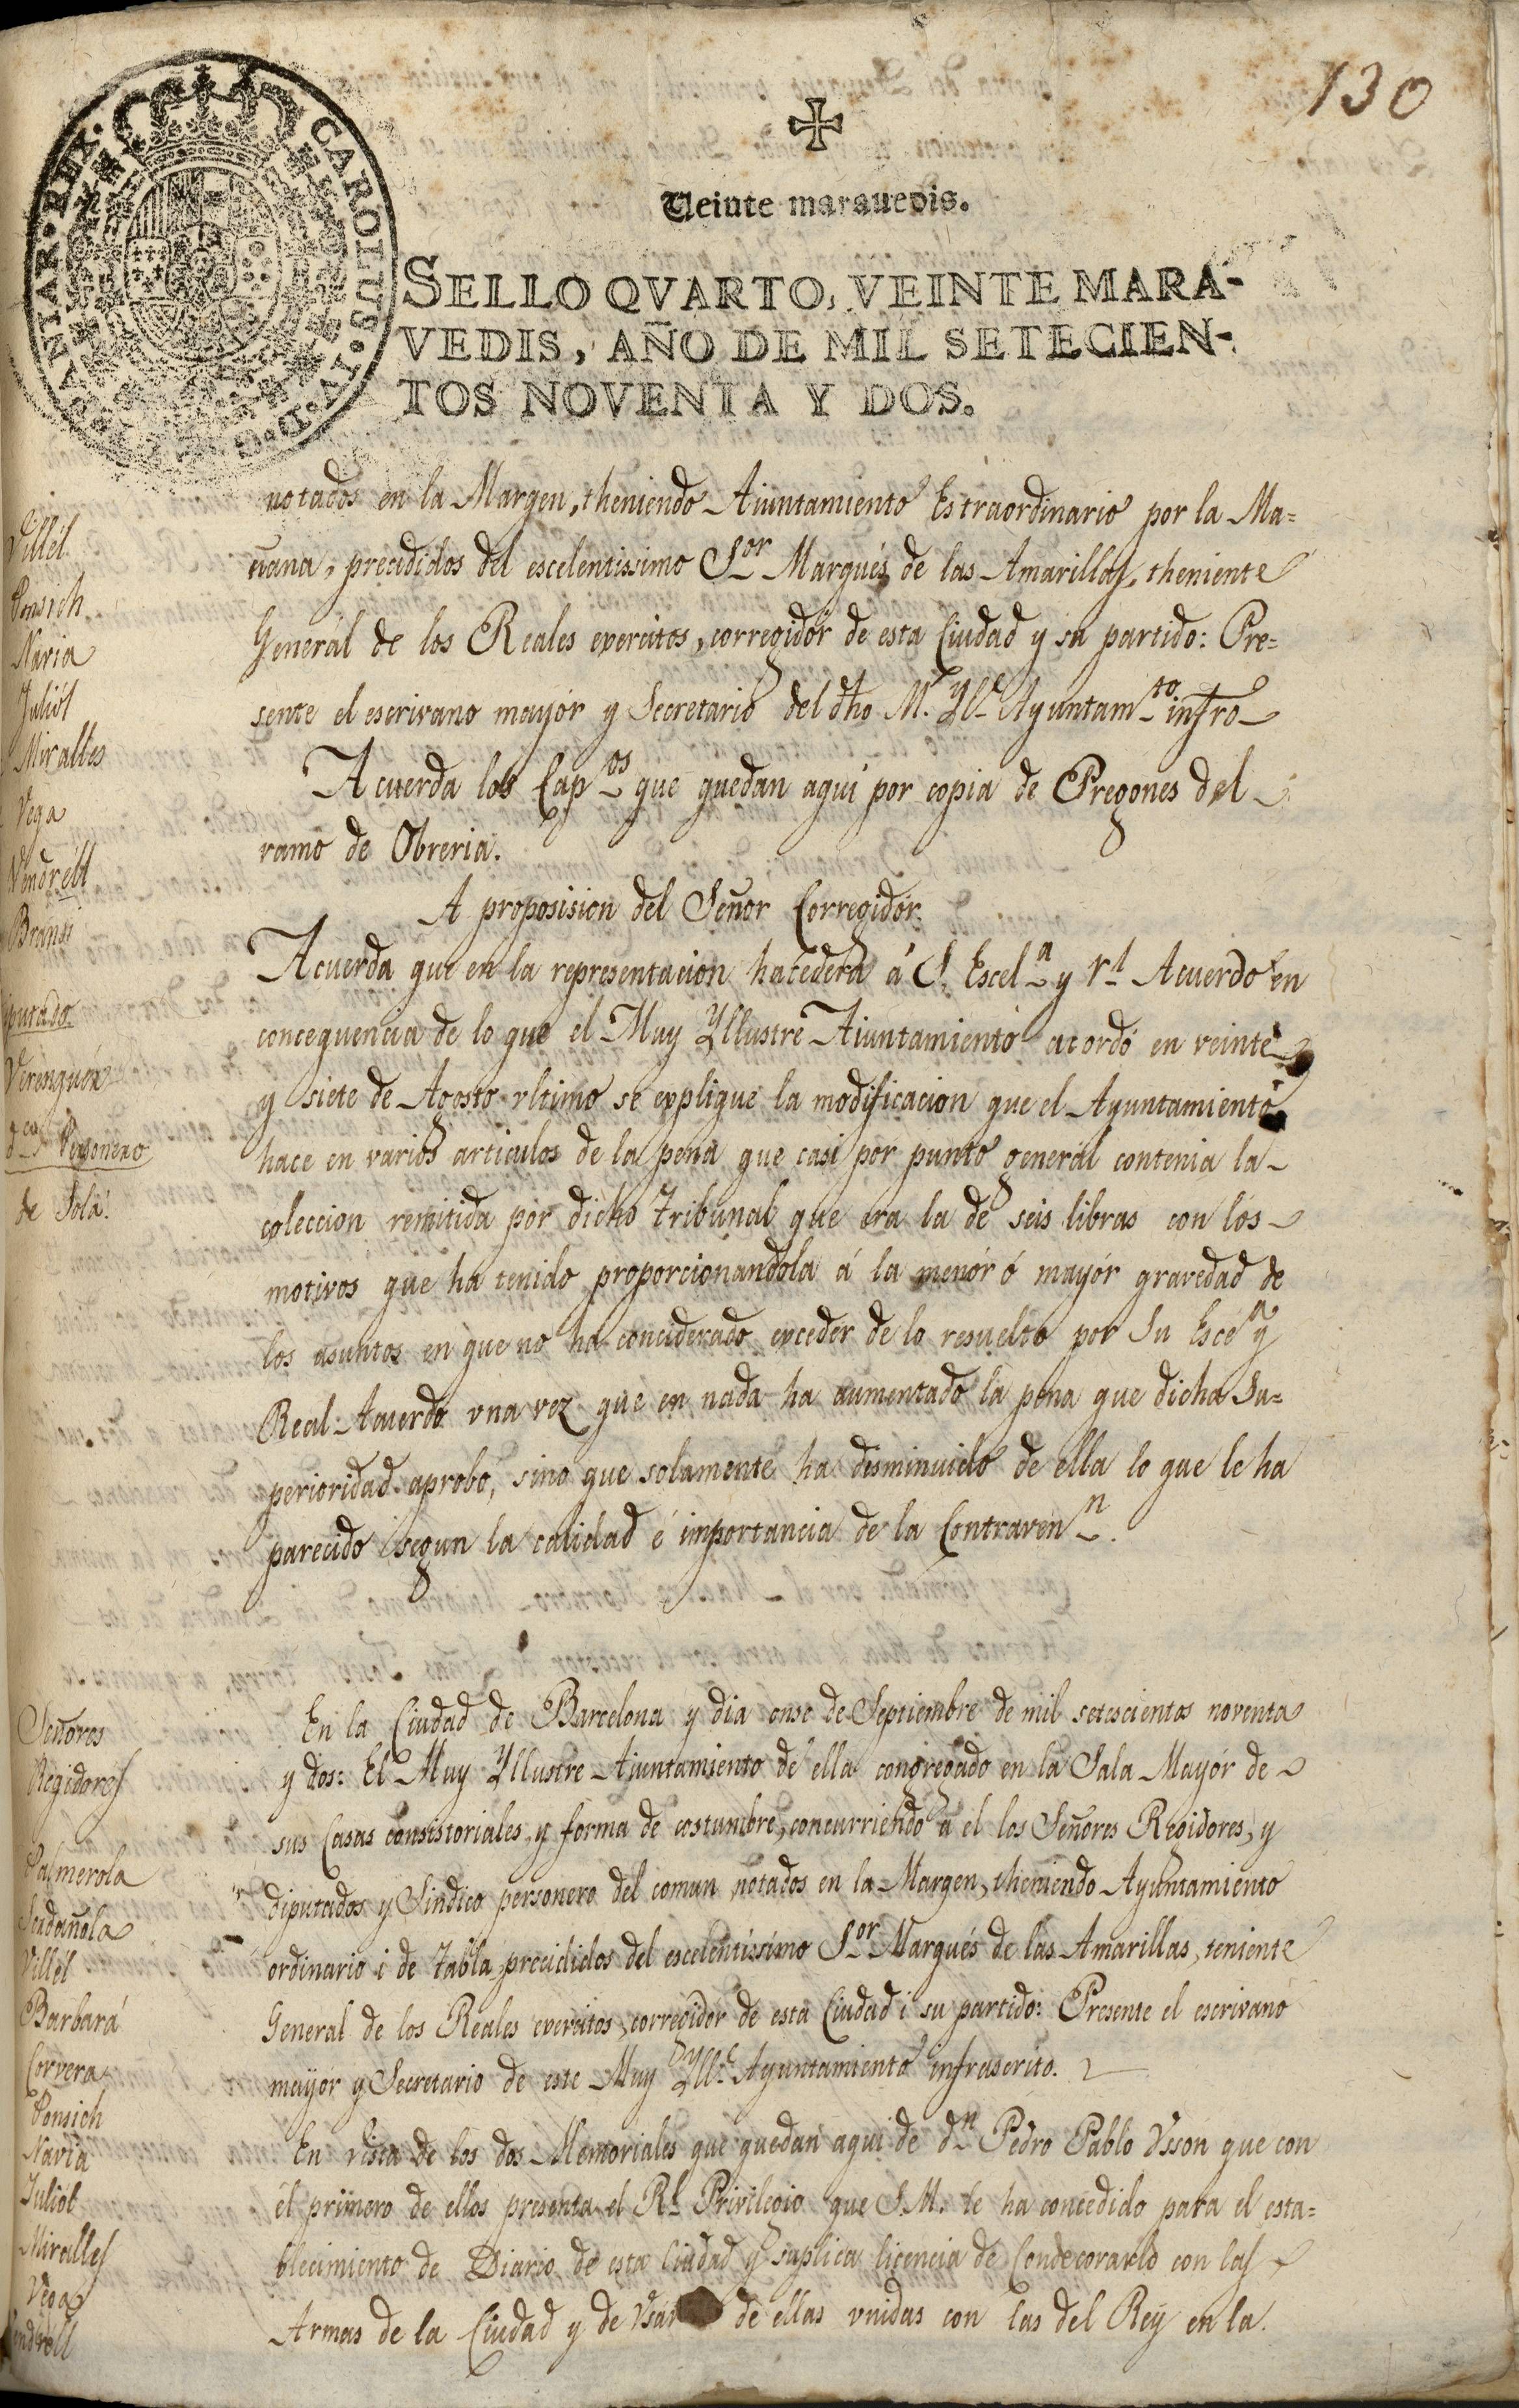 130
Veinte marauedis.
SELLO QVARTO, VEINTE MARA-
VEDIS, AÑO DE MIL SETECIEN-
TOS NOVENTA Y DOS.
CAROLUS
REX
notados en la Margen, theniendo Aiuntamiento Estraordinario por la Ma=
ñana, precedidos del escelentissimo Sor Marqués de las Amarillas, theniente
Generál de los Reales exercitos, corregidór de esta Ciudad y su partido: Pre=
sente el escrivano mayór y Secretario del dho M. Yle Ayuntamto infro
Acuerda los Capos que quedan aqui por copia de Pregones del
ramo de Obreria.
A proposision del Señor Corregidór.
Acuerda que en la representacion hacedera á S. Escela y Rl Acuerdo en
concequencia de lo que el Muy Yllustre Aiuntamiento acordó en veinte
y siete de Agosto vltimo se explique la modificacion que el Ayuntamiento
hace en varios articulos de la pena que casi por punto generál contenia la
coleccion remitida por dicho Tribunal que era la de seis libras con los
motivos que ha tenido proporcionandola á la menór ó mayór gravedad de
los asuntos en que no ha conciderado exceder de lo resuelto por Su Esca y
Real Acuerdo vna vez que en nada ha aumentado la pena que dicha Su=
perioridad aprobó, sino que solamente ha disminuido de ella lo que le ha
parecido segun la calidad é importancia de la Contravenn.
Villél
Ponsich
Navia
Juliól
Miralles
Vega
Vendrell
Bransi
iputado
Verenguér
Personero
de Solá.
En la Ciudad de Barcelona y dia onse de Septiembre de mil setescientos noventa
y dos: El Muy Yllustre Aiuntamiento de ella congregado en la Sala Mayór de
sus Casas consistoriales, y forma de costumbre, concurriendo a el los Señores Regidores, y
diputados y Sindico personero del comun notados en la Margen, theniendo Ayuntamiento
ordinario i de Tabla, precididos del escelentissimo Sor Marqués de las Amarillas, teniente
General de los Reales exercitos, corregidor de esta Ciudad i su partido: Presente el escrivano
mayór y Secretario de este Muy Ylle Ayuntamiento infrascrito.
En vista de los dos Memoriales que quedan aqui de dn Pedro Pablo Vsson que con
él primero de ellos presenta el Rl Privilegio que S.M. le ha concedido para el esta=
blecimiento de Diario de esta Ciudad y suplica licencia de Condecorarlo con las
Armas de la Ciudad y de Vsár de ellas vnidas con las del Rey en la
Señores
Regidores
Palmerola
Serdañola
Villél
Barbará
Corvera
Ponsich
Navia
Juliól
Miralles
Vega
endrell